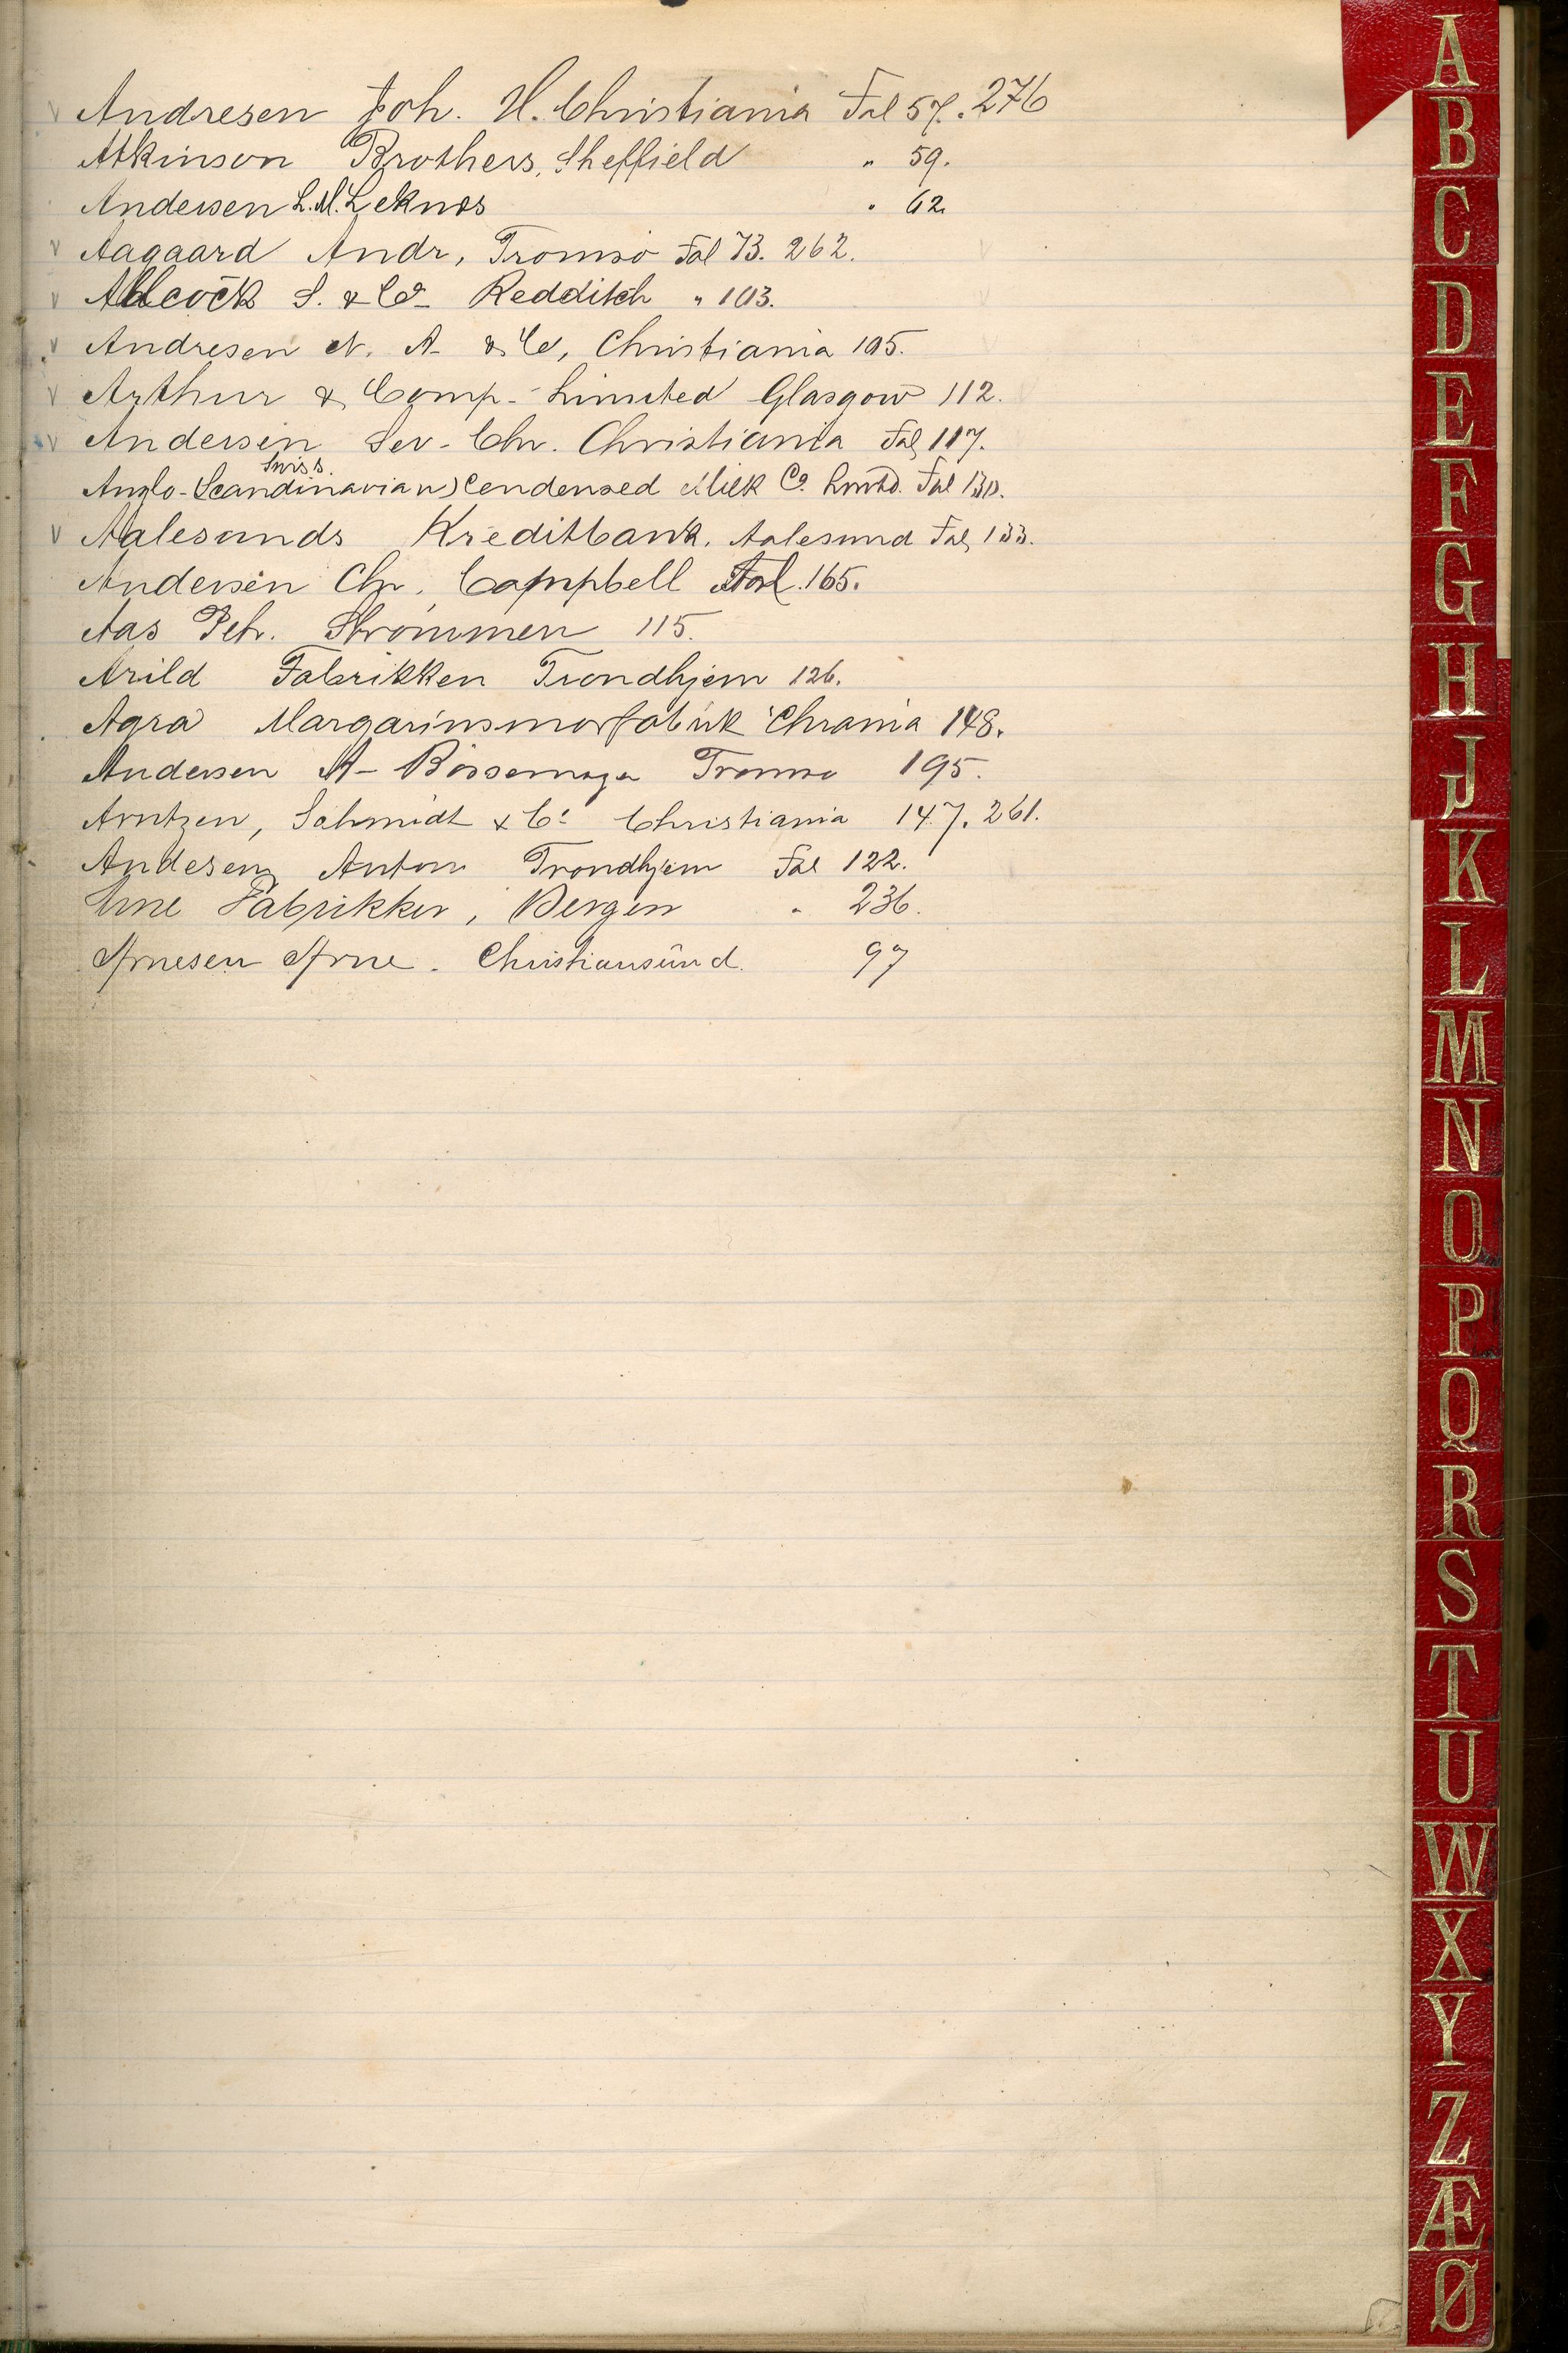 Andresen Joh. H. Christiania Fol 57. 276
Atkinson Brothers, Sheffield " 59.
Andersen L. M. Leknes " 62
Aagaard Andr, Tromsø Fol 73. 262.
Allcock S. & Co Redditch " 103.
Andresen N. A. & Co, Christiania 105.
Arthur & Comp. Limited Glasgow 112.
Andersen Sev. Chr. Christiania Fol 117.
Swiss.
Anglo-(Scandinavian) Condensed Milk Co. Lmtd. Fol 130.
Aalesunds Kreditbank. Aalesund Fol 133.
Andersen Chr. Campbell Fol. 165.
Aas Petr. Strømmen 115.
Arild Fabrikken Trondhjem 126.
Agra Margarinsmørfabrik Chrania 148.
Andersen A- Bøssemager Tromsø 195.
Arntzen, Schmidt & Co Christiania 147. 261.
Andesen Anton Trondhjem Fol 122.
Arne Fabrikker, Bergen " 236.
Arnesen Arne. Christiansund. 97
A
B
C
D
E
F
G
H
J
K
L
M
N
O
P
Q
R
S
T
U
W
X
Y
Z
Æ
Ø